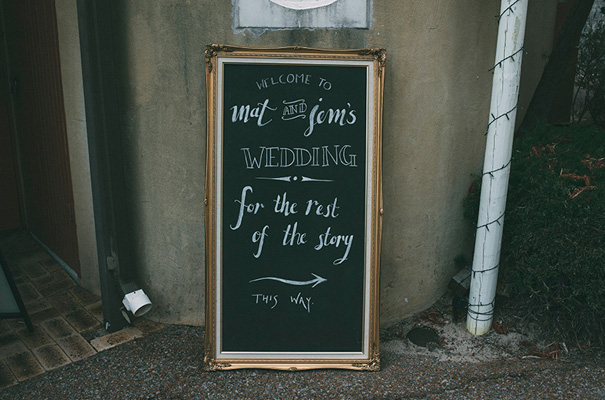 WELCOME TO
mat AND jem's
WEDDING
for the rest
of the story
THIS WAY.